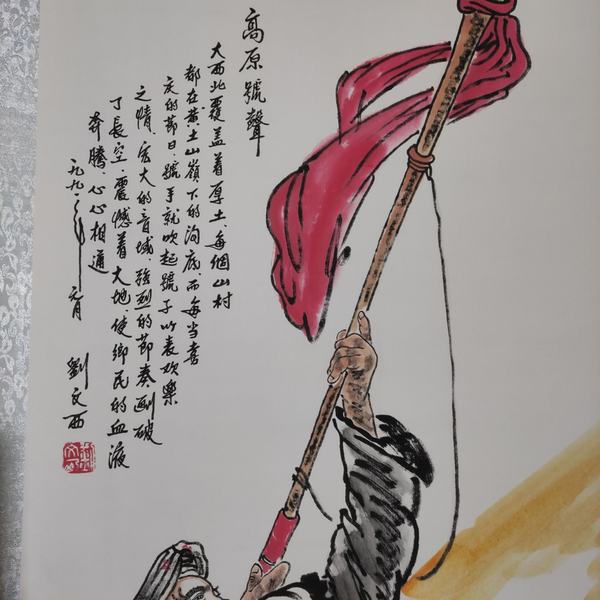 高原號聲
大西北覆盖着厚土,每個山村
都在黄土山嶺下的溝底,而每当喜
庆的節日,號手就吹起號子以表欢樂
之情,宏大的音域,強烈的節奏劃破
了長空,震憾着大地,使鄉民的血液
奔腾,心心相通
一九九一年元月
劉文西